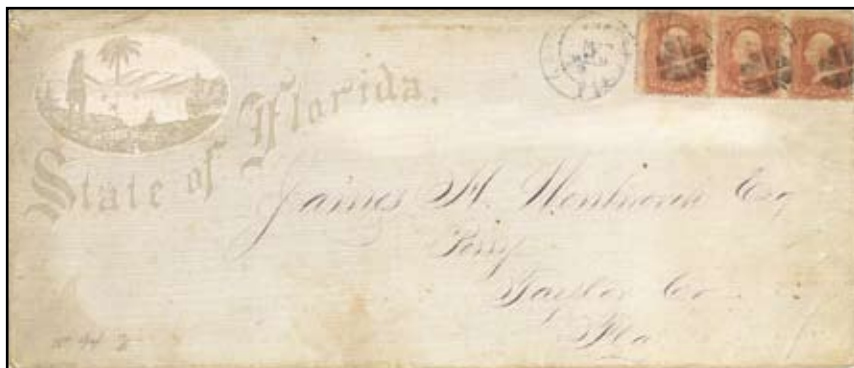 State of Florida.
James H. Wentworth Esq
Perry
Taylor Co
Fla